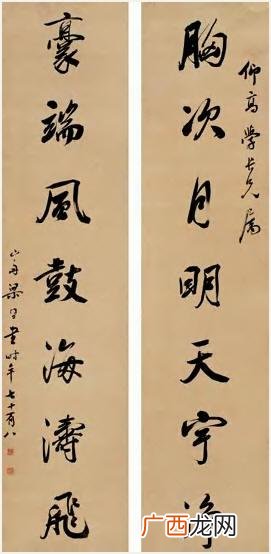 仰高學長兄屬
胸次月明天宇淨
豪端風鼓海濤飛
山舟梁同書時年七十有八
广西龙网